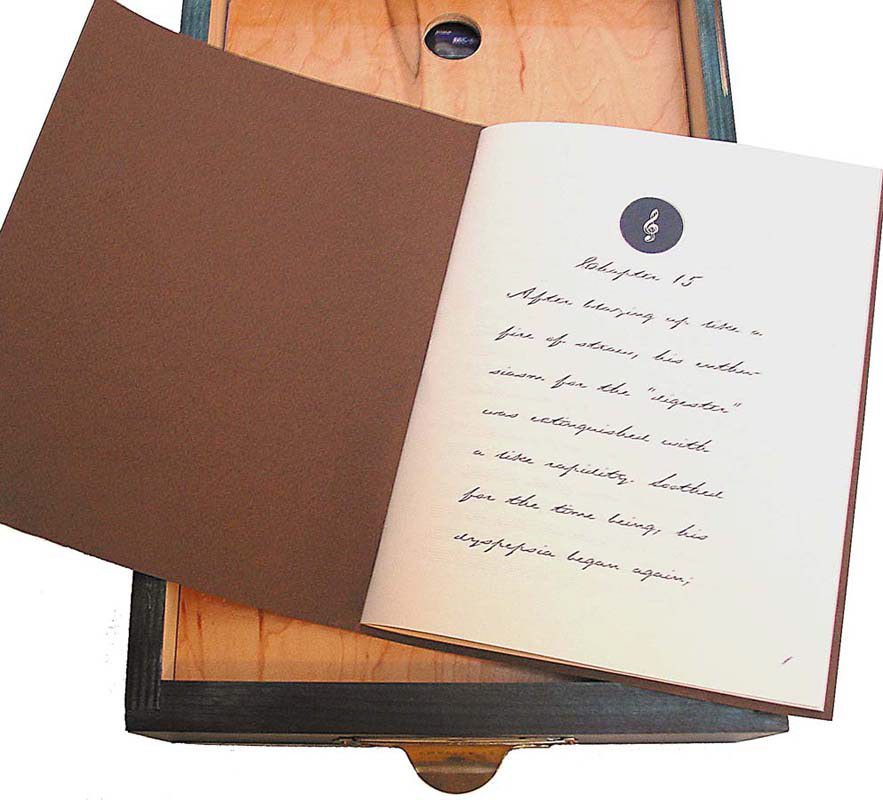 Chapter 15
After blazing up like a
fire of straw, his enthu-
siasm for the "digester"
was extinguished with
a like rapidity. Soothed
for the time being, his
dyspepsia began again;
1